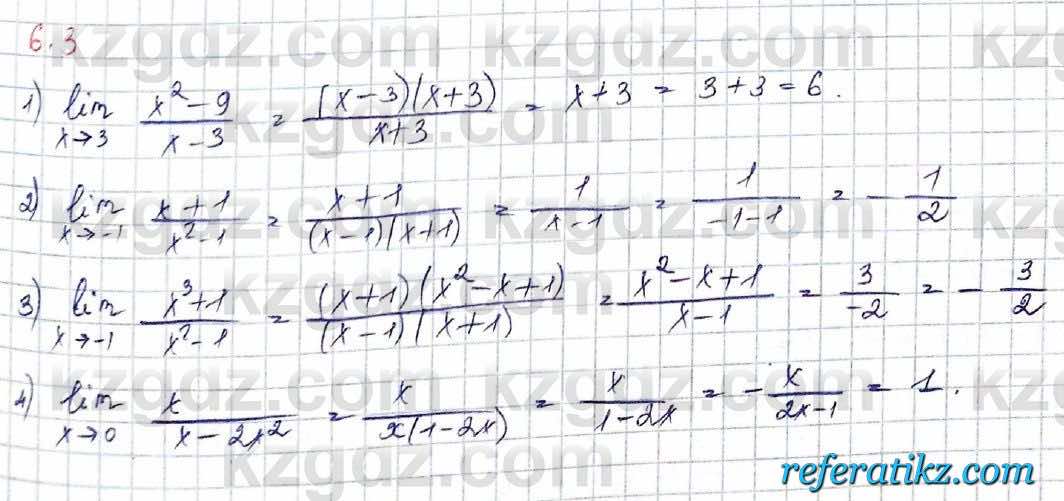 6.3
1) lim x→3 (x² - 9)/(x - 3) = ((x - 3)(x + 3))/(x + 3) = x + 3 = 3 + 3 = 6.
2) lim x→-1 (x + 1)/(x² - 1) = (x + 1)/((x - 1)(x + 1)) = 1/(x - 1) = 1/(-1 - 1) = - 1/2
3) lim x→-1 (x³ + 1)/(x² - 1) = ((x + 1)(x² - x + 1))/((x - 1)(x + 1)) = (x² - x + 1)/(x - 1) = 3/(-2) = - 3/2
4) lim x→0 x/(x - 2x²) = x/(x(1 - 2x)) = x/(1 - 2x) = - x/(2x - 1) = 1.
kzgdz.com
referatikz.com